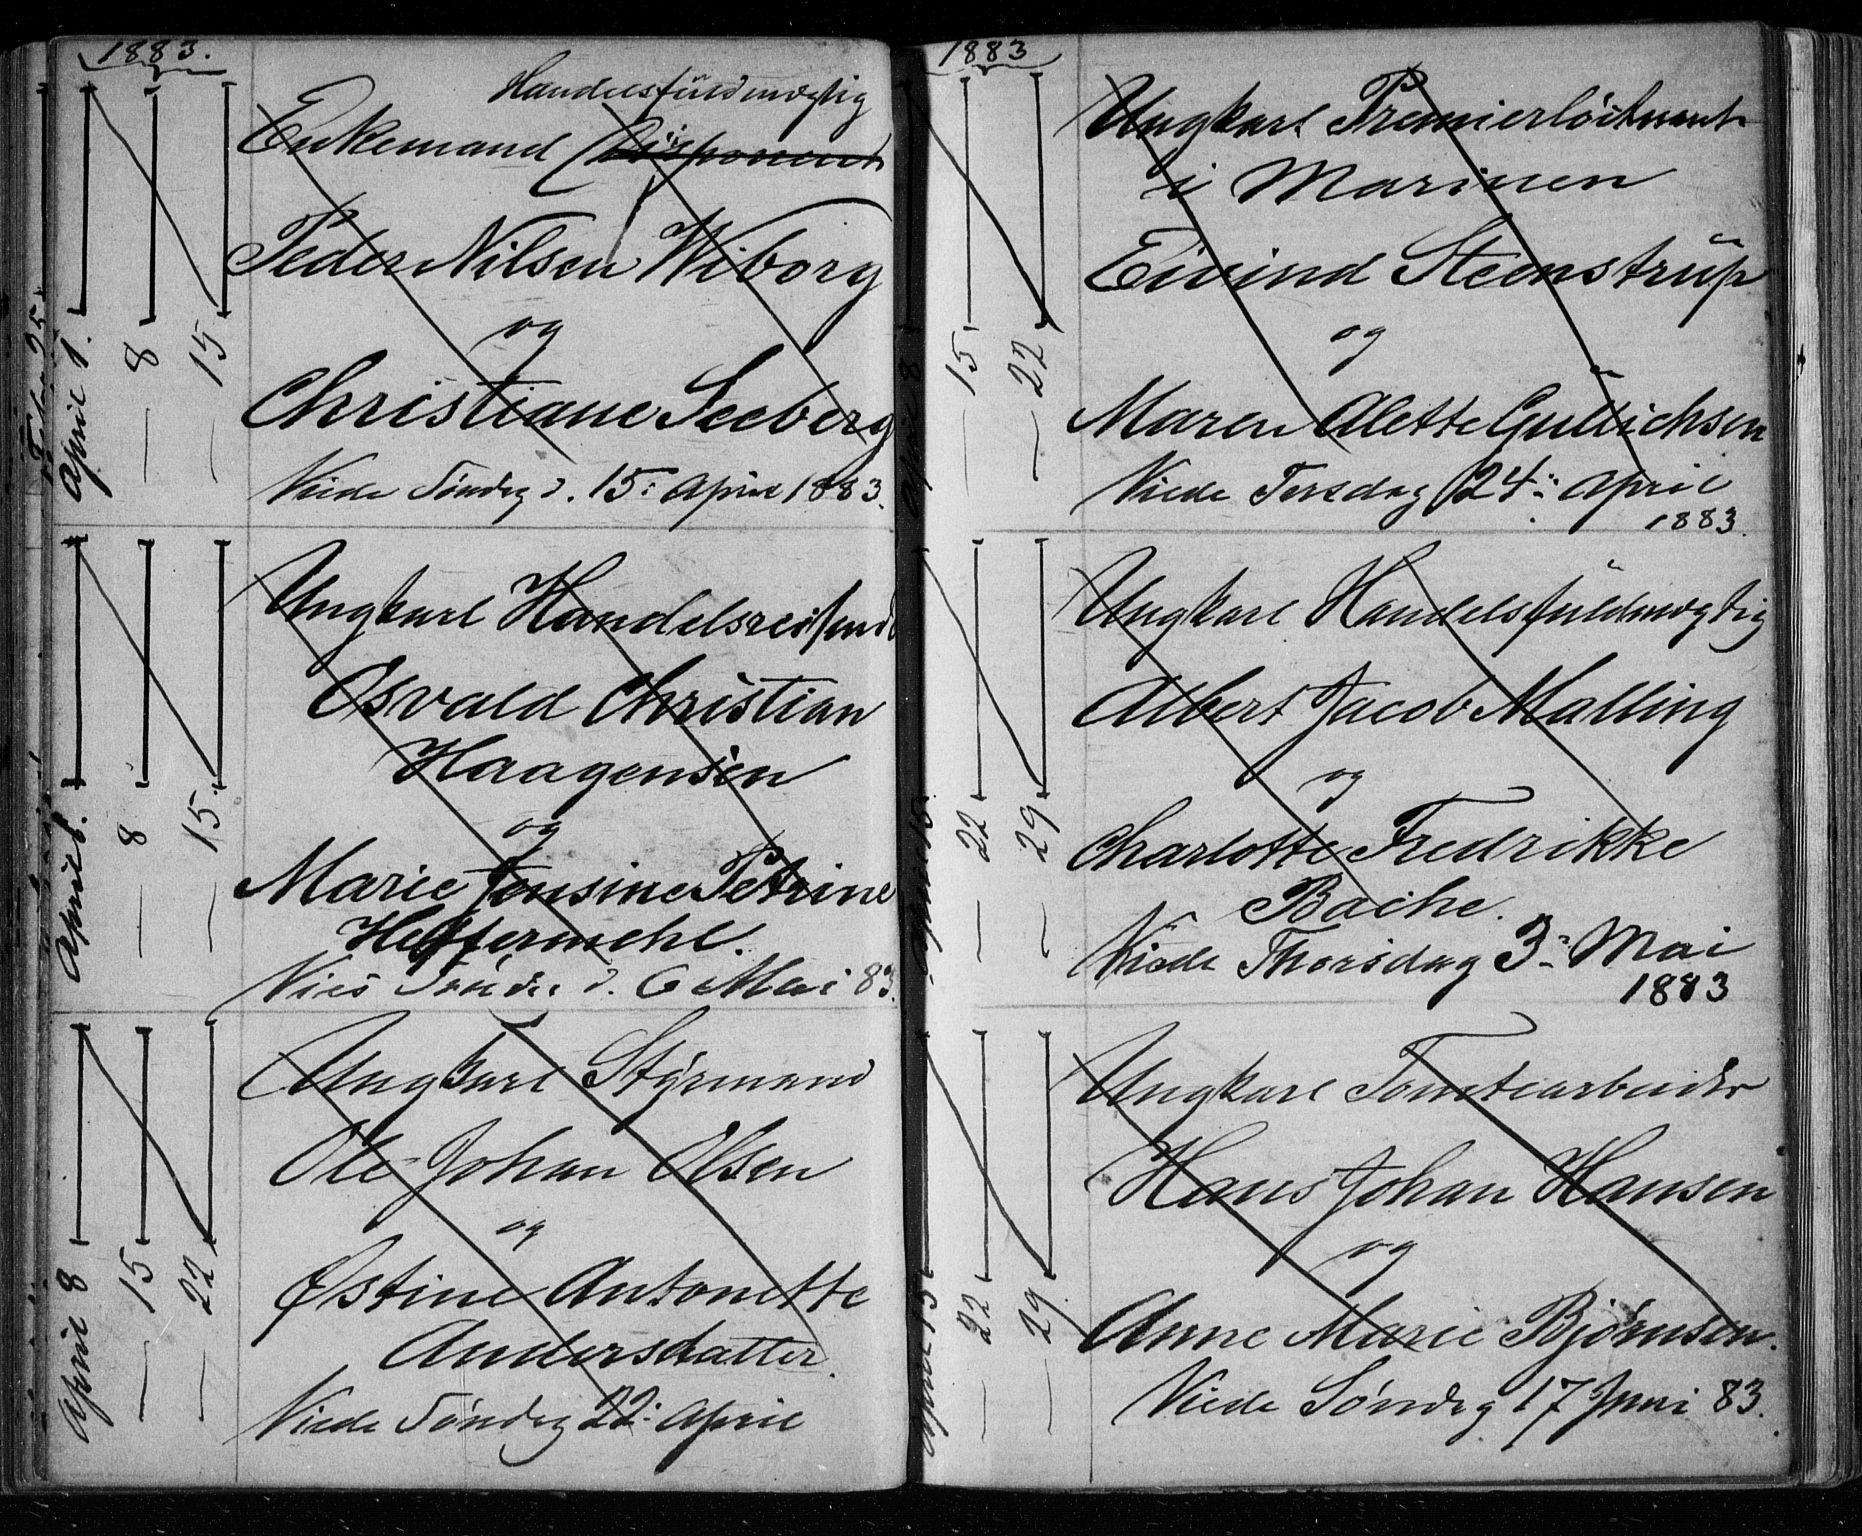 1883.
April 1.
— 8
— 15
Handelsfuldmægtig
Enkemand Disponent
Peder Nilsen Wiborg
og
Christiane Seeberg
Viede Søndag d. 15: April 1883.
April 1.
— 8
— 15
Ungkarl Handelsreisende
Osvald Christian
Haagensen
og
Marie Jensine Petrine
Heffermehl.
d. 6 Mai 83.
April 8
— 15
— 22
Ungkarl Styrmand
Ole Johan Olsen
og
Østine Antonette
Andersdatter.
Viede Søndag 22: April
1883
April 8
— 15
— 22
Ungkarl Premierløitnant
i Marinen
Eivind Steenstrŭp
og
Maren Alette Gŭllichsen
Viede Tirsdag 24: April
1883.
April 15.
— 22
— 29
Ungkarl Handelsfŭldmægtig
Albert Jacob Malling
og
Charlotte Fredrikke
Bache.
Viede Thorsdag 3: Mai
1883
April 15
— 22
— 29
Ungkarl Tomtearbeider
Hans Johan Hansen
og
Anne Marie Bjørnsen.
Viede Søndag 17 Juni 83.